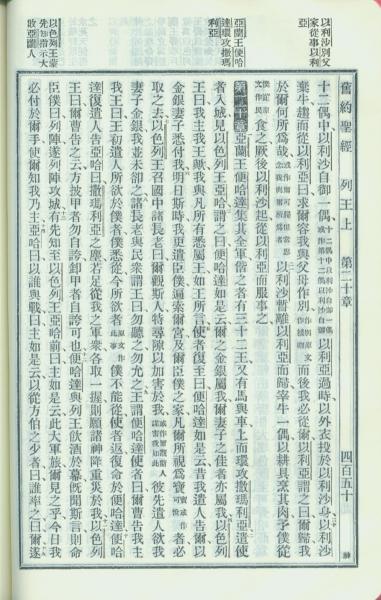 舊約聖經 列王上 第二十章 四百五十
以利沙別父
家從事以利
亞
亞蘭王便哈
達環攻撒瑪
利亞
以色列王蒙
先知指示大
敗亞蘭人
十二偶中以利沙自御一偶以利亞過時以外衣投於以利沙身以利沙
棄牛趨而從以利亞曰求爾容我與父母作別而後我必從爾以利亞謂之曰爾歸我
於爾何所為哉以利沙暫離以利亞而歸宰牛一偶以耕具烹其肉予僕從
食之厥後以利沙起從以利亞而服事之
第二十章亞蘭王便哈達集其全軍偕之者有三十二王又有馬與車上而環攻撒瑪利亞遣使
者入城見以色列王亞哈謂之曰便哈達如是云爾之金銀屬我爾妻子之佳者亦屬我以色列
王曰我主我王歟我與凡所有悉屬王如王所言使者復至曰便哈達如是云昔我遣人告爾以
金銀妻子悉付我明日斯時我更遣臣僕遍索爾宮及爾臣僕之家凡爾所視為寶者必
取之去以色列王召國中諸長老曰爾觀斯人特尋隙以加害於我彼先遣人欲我
妻子金銀我並未卻之諸長老與民眾謂王曰勿聽之勿允之王謂便哈達使者曰爾曹告我主
我王曰王初遣人所欲於僕者僕悉從今所欲者僕不能從使者返復命於便哈達便哈
達復遣人告亞哈曰撒瑪利亞之塵若足從我之軍眾各取一握則願諸神降重災於我以色列
王曰爾曹告之云方披甲者勿自誇如卸甲者自誇可也便哈達與列王飲酒於幕既聞斯言則命
臣僕曰列陣遂列陣攻城有先知至以色列王亞哈前曰主如是云此大軍旅爾見之乎今日我
必付於爾手使爾知我乃主亞哈曰以誰與戰曰主如是云以從方伯之少者曰誰率之曰爾遂